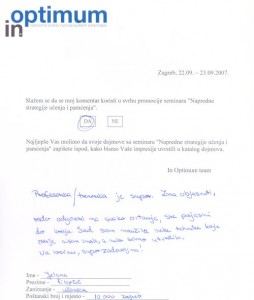 in optimum
Zagreb, 22.09. - 23.09.2007.
Slažem se da se moj komentar koristi u svrhu promocije seminara "Napredne
strategije učenja i pamćenja".
DA NE
Najljepše Vas molimo da svoje dojmove sa seminara "Napredne strategije učenja i
pamćenja" zapišete ispod, kako bismo Vaše impresije uvrstili u katalog dojmova.
In Optimum team
je super. Zna objasniti,
rado odgovara na svako pitanje, sve pojasni
do kraja. Sad sam naučila neke tehnike koje
prije nisam znala, a neke samo utvrdila.
super zadovoljna!
Ime - Jelena
Prezime -
Zanimanje - učenica
Poštanski broj i mjesto - 10 000 Zagreb